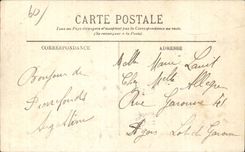 60
CARTE POSTALE
Tous les Pays étrangers n'acceptent pas la Correspondance au recto.
(Se renseigner à la Poste)
CORRESPONDANCE
ADRESSE
Bonjour de
Pierrefonds
Angeline
Melle Marie
Chez Melle
Rue Garonne 41
Agen Lot et Garonne